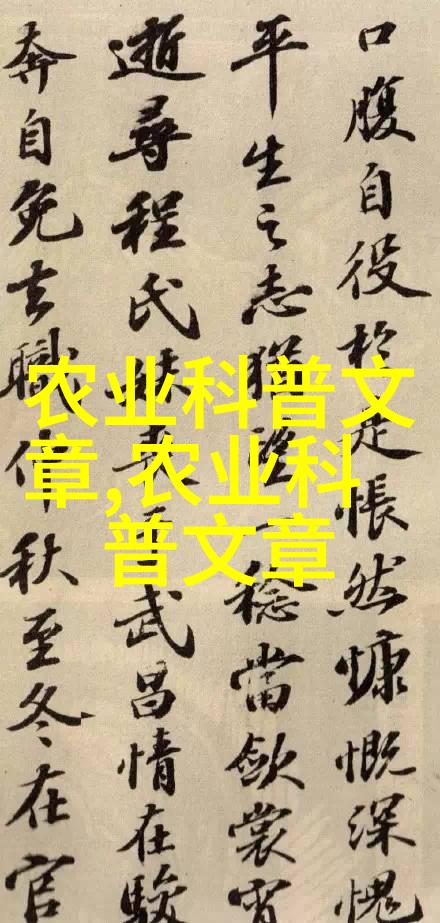 口腹自役於是悵然慷慨深愧
平生之志猶望一稔當歛裳宵
逝尋程氏妹喪于武昌情在駿
奔自免去職仲秋至冬在官
农业科普文
章,农业科
普文章